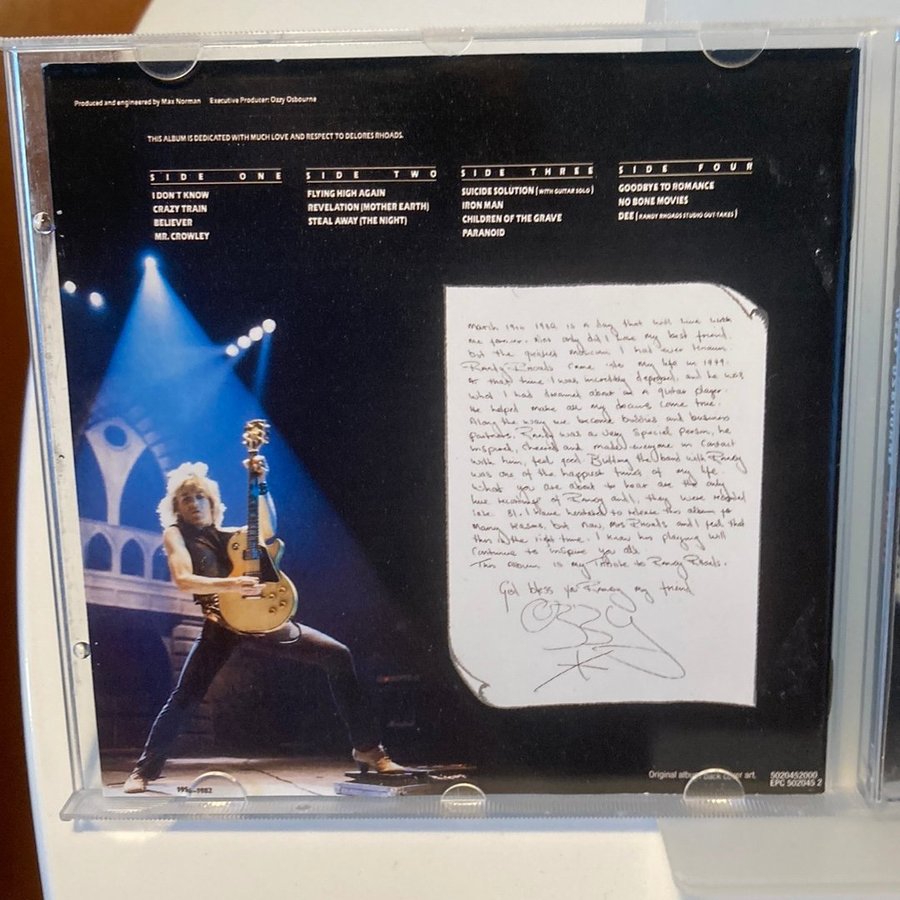 Produced and engineered by Max Norman Executive Producer: Ozzy Osbourne
THIS ALBUM IS DEDICATED WITH MUCH LOVE AND RESPECT TO DELORES RHOADS.
SIDE ONE
I DON'T KNOW
CRAZY TRAIN
BELIEVER
MR. CROWLEY
SIDE TWO
FLYING HIGH AGAIN
REVELATION (MOTHER EARTH)
STEAL AWAY (THE NIGHT)
SIDE THREE
SUICIDE SOLUTION (WITH GUITAR SOLO)
IRON MAN
CHILDREN OF THE GRAVE
PARANOID
SIDE FOUR
GOODBYE TO ROMANCE
NO BONE MOVIES
DEE (RANDY RHOADS STUDIO OUT-TAKES)
March 19th 1982 is a day that will live with
me forever. Not only did I lose my best friend.
but the greatest musician I had ever known
Randy Rhoads came into my life in 1979.
At that time I was incredibly depressed, and he was
what I had dreamed about as a guitar player
He helped make all my dreams come true.
Along the way we become buddies and business
partners. Randy was a very special person, he
inspired, cheered and made everyone in contact
with him, feel good. Building the band with Randy
was one of the happiest times of my life
What you are about to hear are the only
live recordings of Randy and I, they were recorded
late 81. I have hesitated to release this album for
many reasons, but now, Mrs Rhoads and I feel that
this is the right time. I know his playing will
continue to inspire you all.
This album is my Tribute to Randy Rhoads.
God bless you Randy my friend
OZZY
Original album back cover art.
5020452000
EPC 502045 2
1956-1982